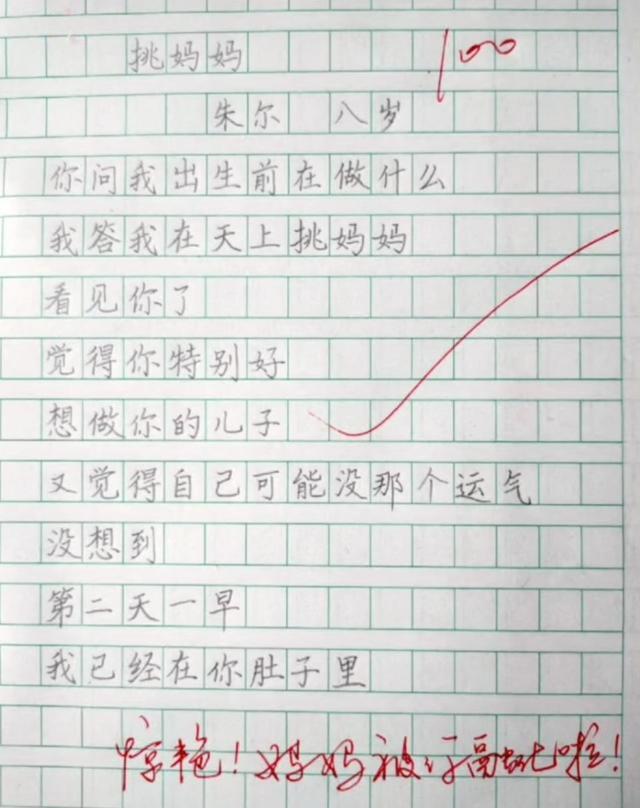 挑妈妈
100
朱尔 八岁
你问我出生前在做什么
我答我在天上挑妈妈
看见你了
觉得你特别好
想做你的儿子
又觉得自己可能没那个运气
没想到
第二天一早
我已经在你肚子里
惊艳！妈妈被行融化啦！